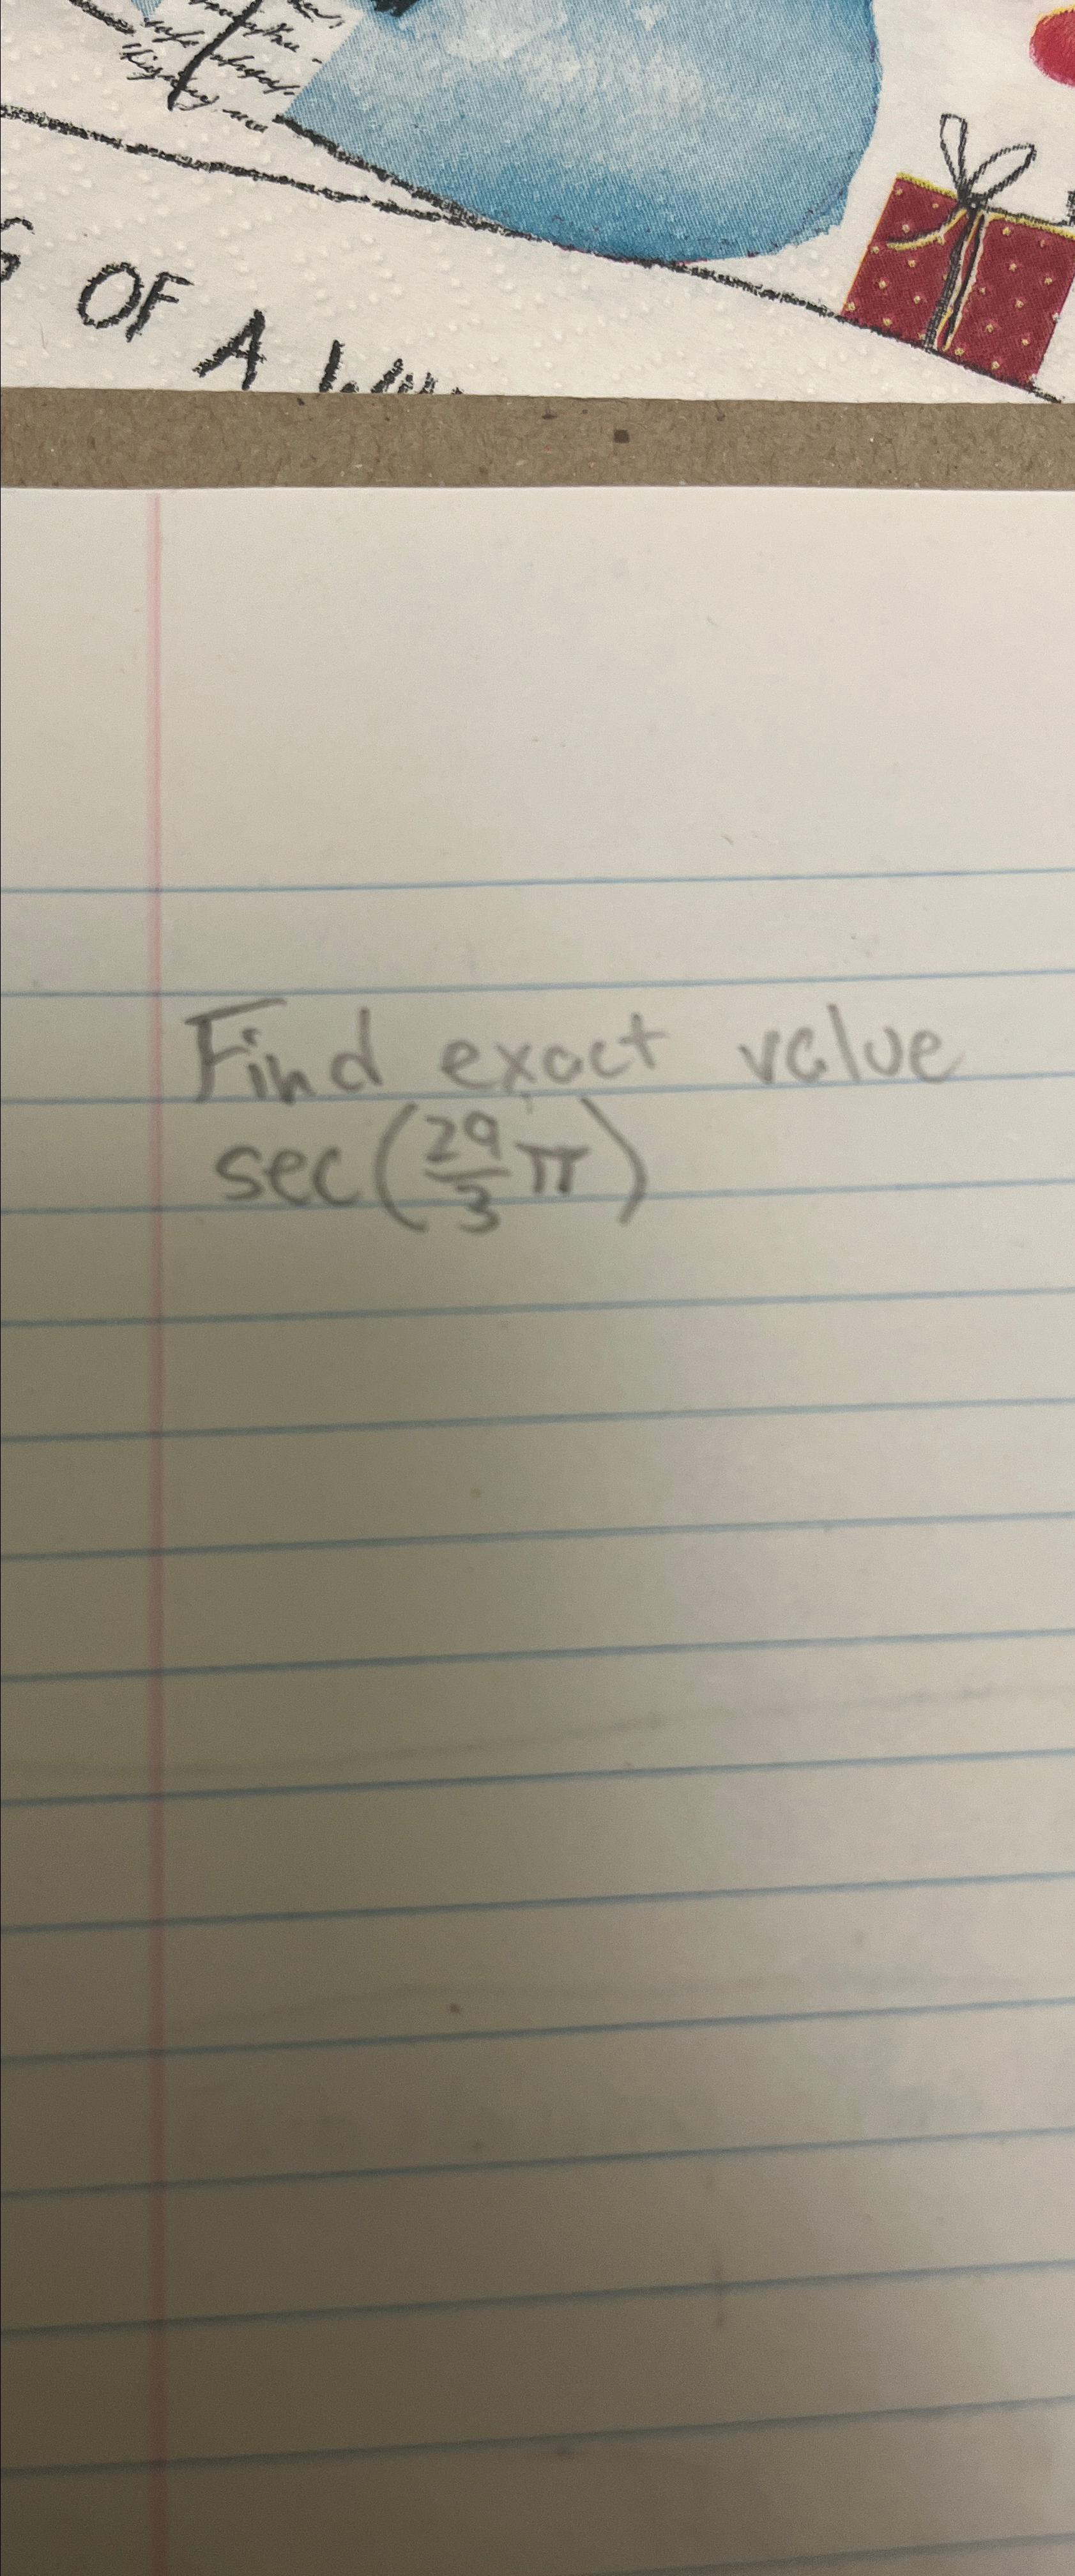 OF A
Find exact value
sec(29/3 π)